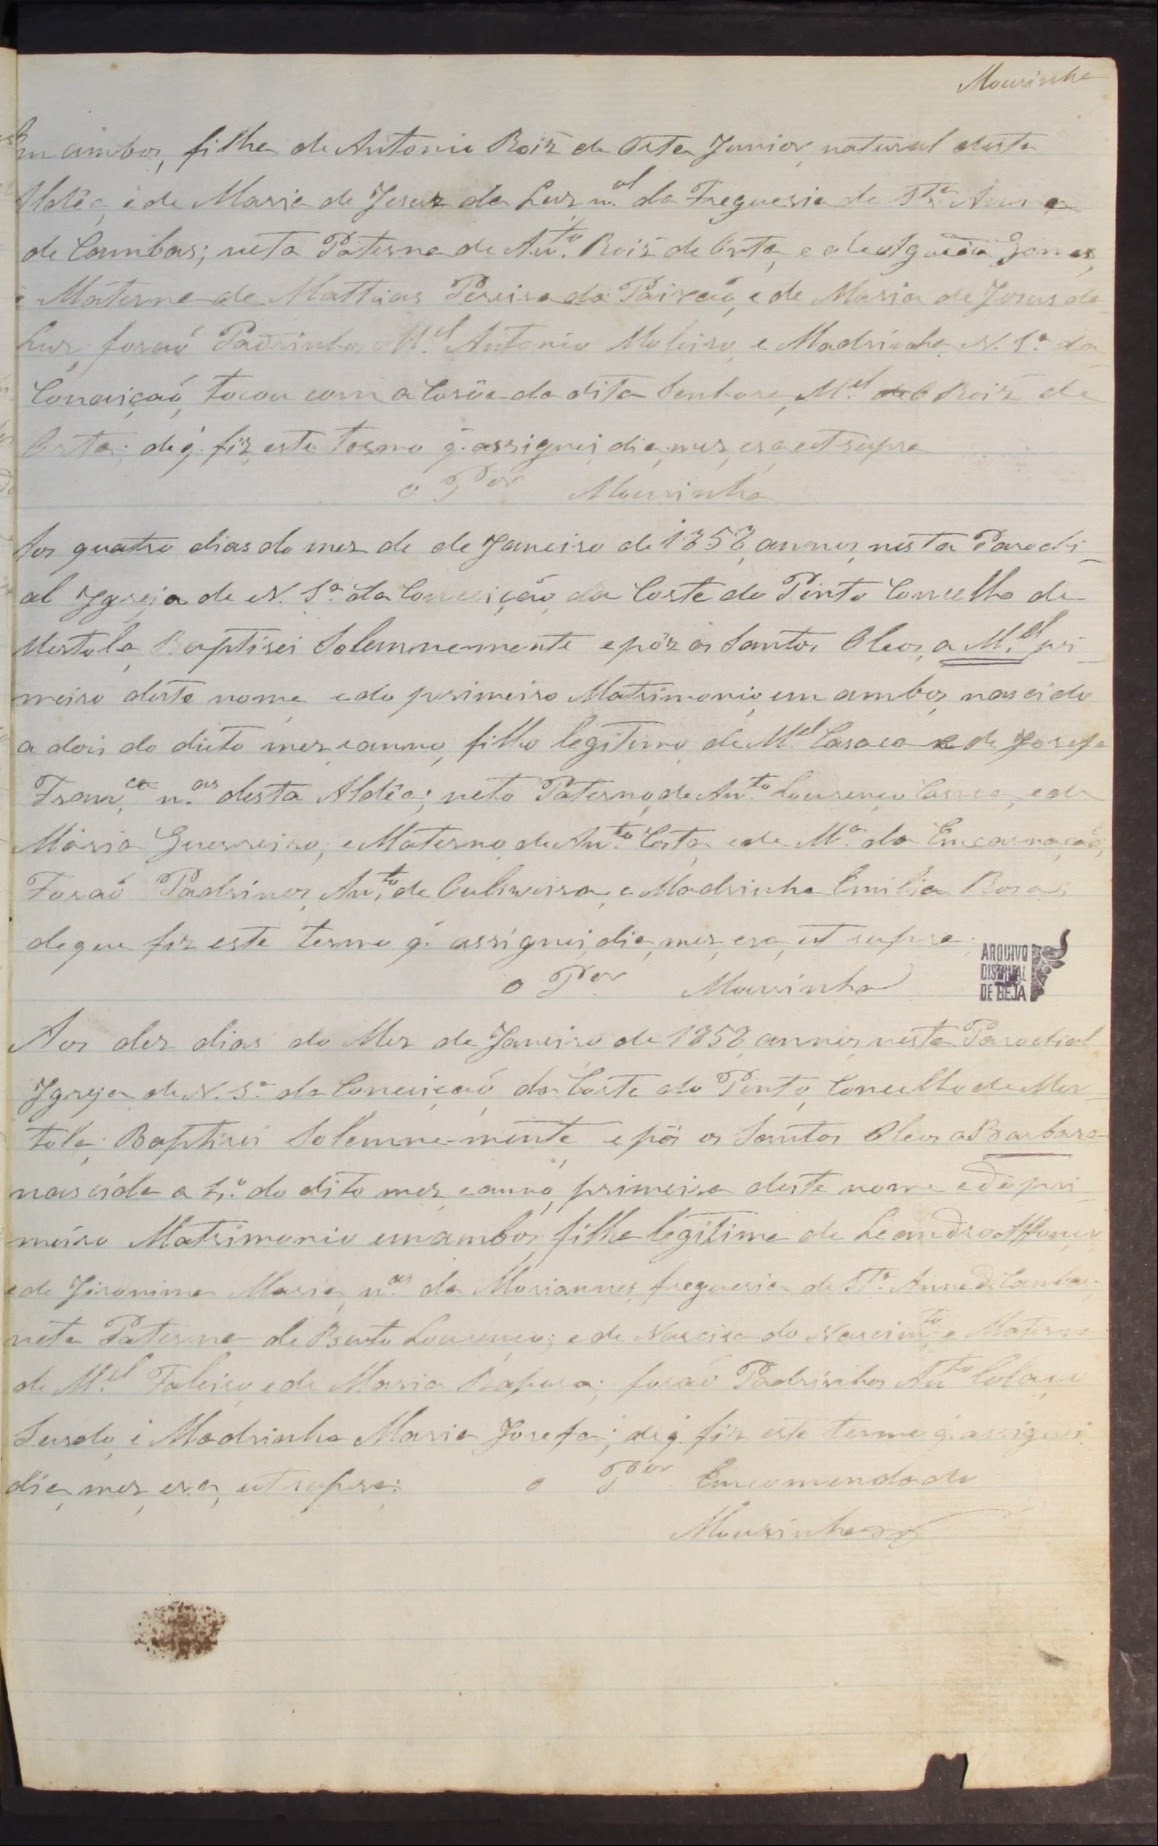 Mousinho
em ambos, filha de Antonio Roiz de Orta Junior, natural desta
Aldêa, e de Maria de Jesus da Luz n.al da Freguesia de Sta Anna
de Cambas; neta Paterna de Ant.to Roiz de Orta, e de Agueda Gomes,
e Materna de Mathias Pereira da Paixaõ, e de Maria de Jesus da
Luz, foraõ Padrinhos M.el Antonio Moleiro, e Madrinha N. S.a da
Conceiçaõ, tocou com a Corôa da dita Senhora, M.el Roiz de
Orta; de q. fiz este termo q. assignei, dia, mez, era, ut supra
o P.or Mousinho
Aos quatro dias do mez de de Janeiro de 1858 annos, nesta Parochi-
al Ygreja de N. S.a da Conceiçaõ, da Corte do Pinto Concelho de
Mertola, Baptisei Solemnemente e pôz os Santos Oleos, a M.el pri-
meiro deste nome e do primeiro Matrimonio, em ambos, nascido
a dois do dicto mez e anno, filho legitimo de M.el Casaca e de Josefa
Fran.ca n.aes desta Aldêa; neto Paterno, de Ant.to Lourenço Casaca, e de
Maria Guerreiro, e Materno de Ant.to Costa, e de M.a da Encarnaçaõ;
Foraõ Padrinos, Ant.to de Oulivreira, e Madrinha Emilia Rosa;
de que fiz este termo q. assignei, dia, mez, era, ut supra
o P.or Mousinho
ARQUIVO
DISTRITAL
DE BEJA
Aos dez dias do Mez de Janeiro de 1858 annos, nesta Parochial
Ygreja de N. S.a da Conceiçaõ da Corte do Pinto, Concelho de Mer-
tola; Baptisei Solemne-mente e pôs os Santos Oleos a Barbara
nascida a 4.o do dito mez e anno, primeira deste nome e do pri-
meiro Matrimonio em ambos, filha legitima de Leandro Affonço
e de Jironima Maria, n.aes da Mariannes freguesia de Sta. Anna de Cambas
neta Paterna de Bento Lourenço; e de Narcisa do Nascim.to, e Materna
de M.el Faleiro, e de Maria Raposa; foraõ Padrinhos Ant.to Colaço
Surdo e Madrinha Maria Josefa; de q. fiz este termo q. assignei
dia, mez, era, ut supra: o P.or Encomendado
Mousinho